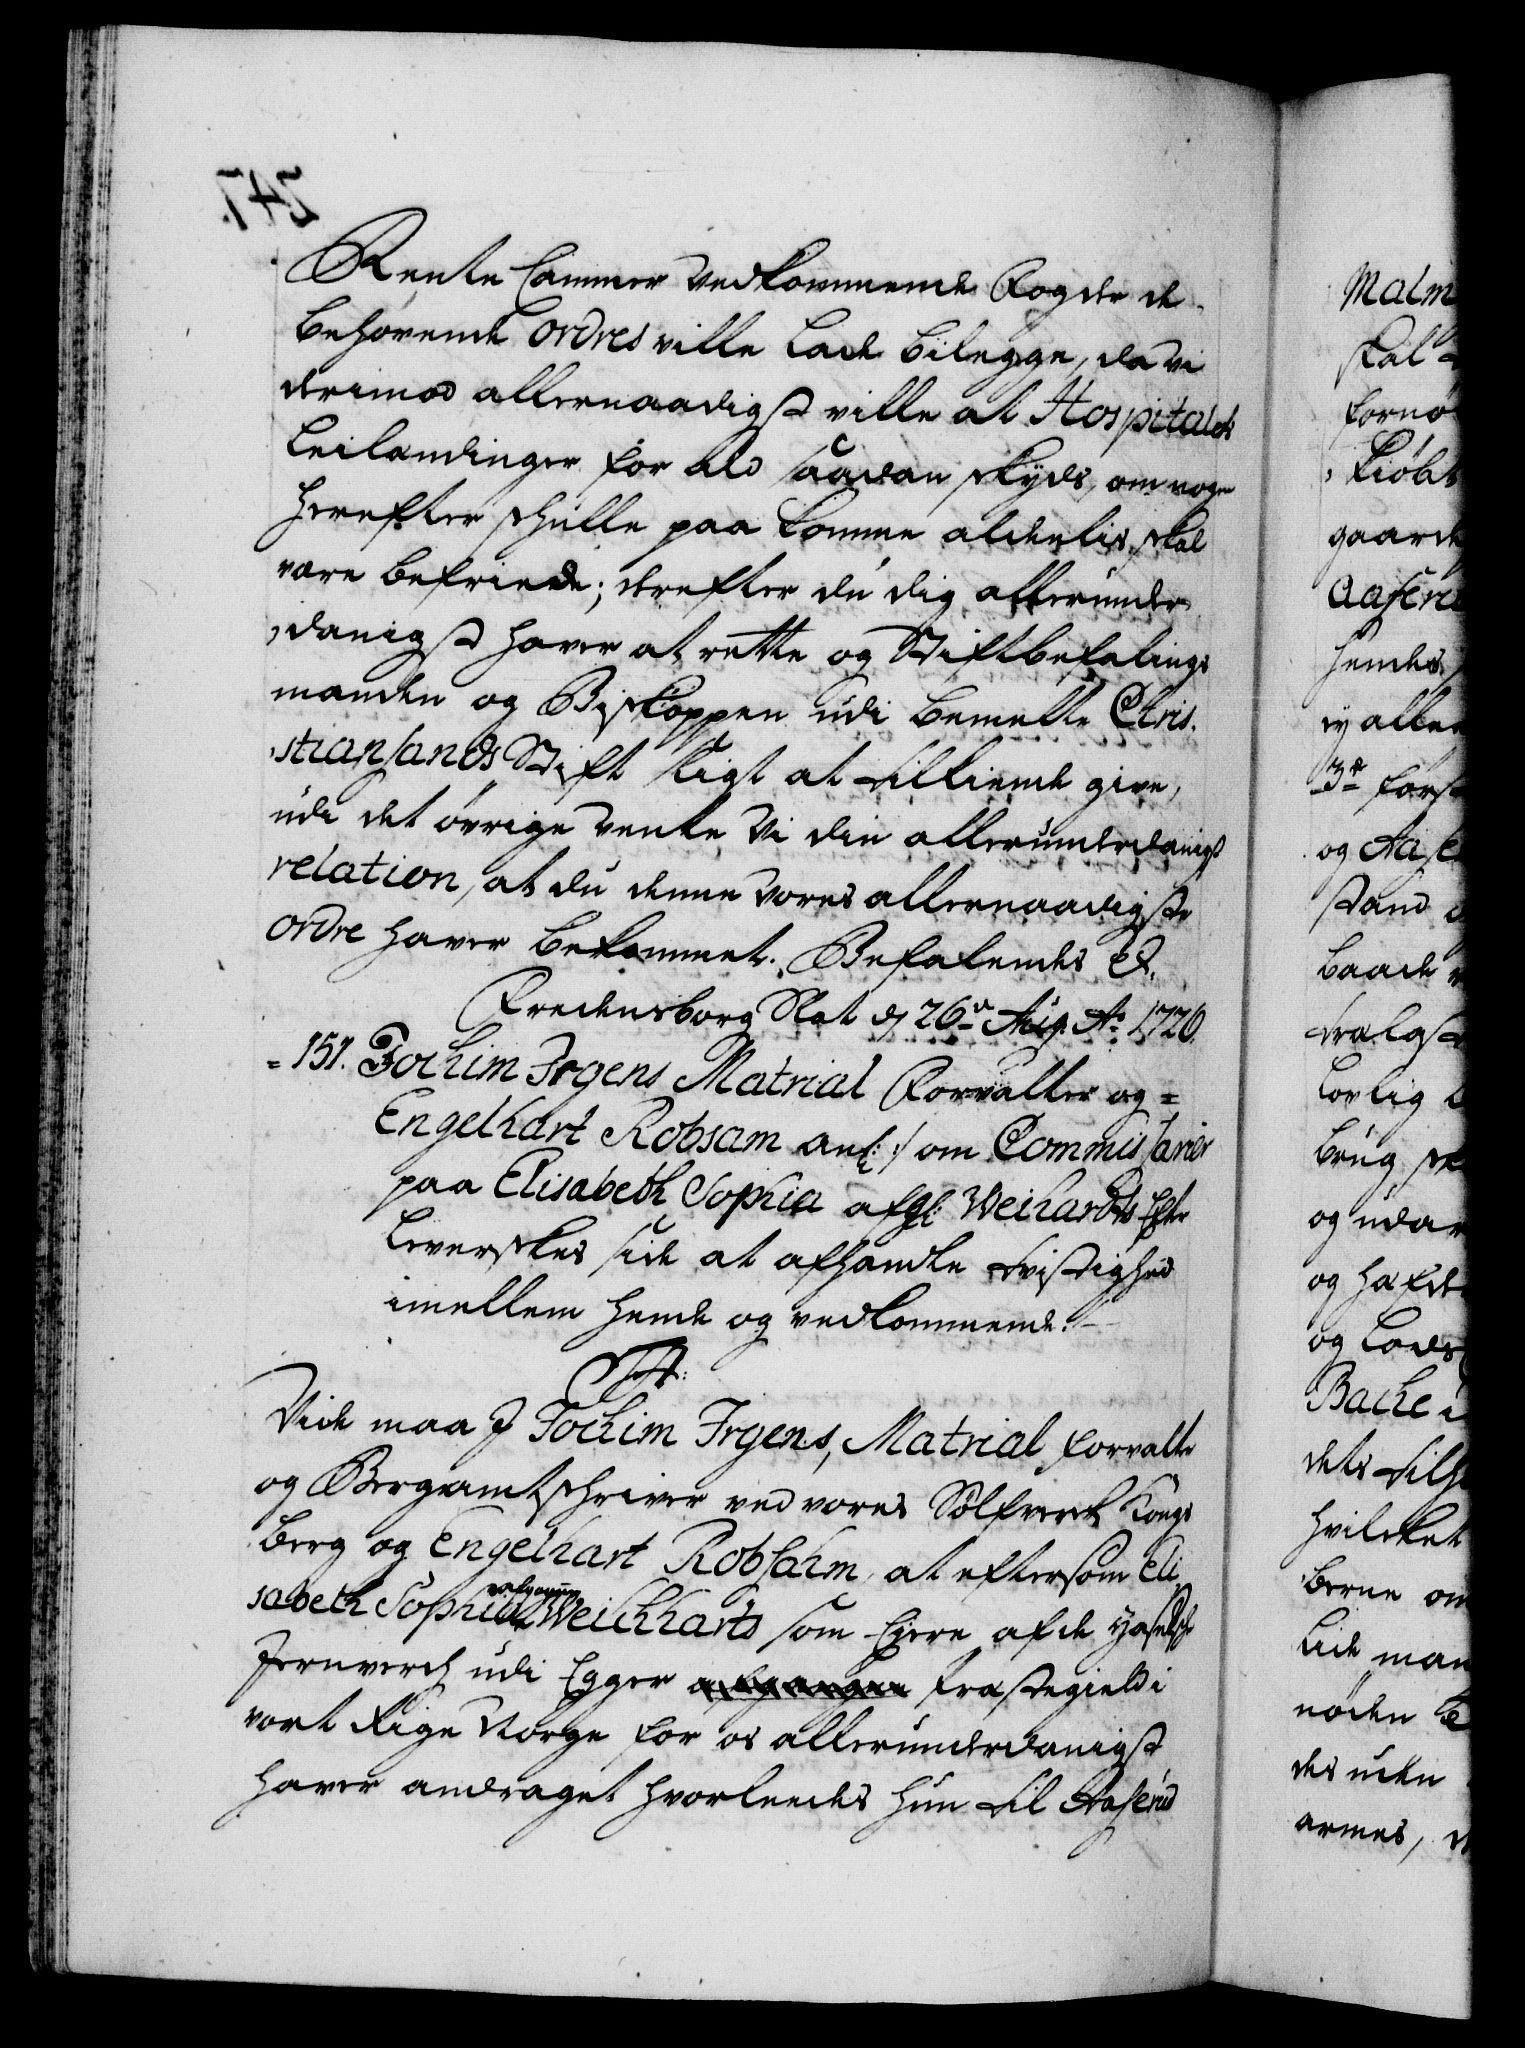 Rente Cammer vedkommende Fogder de
behøvende ordres ville lade bilegge, da vi
derimod allernaadigst ville at Hospitalets
Leilændinger for ald saadan skyds, om noge
herefter schulle paa komme aldelis skal
være befriede; derefter du dig allerunder,
,danigst haver at rette og Stiftbefalings
manden og Biskoppen udi bemelte Chris.
,stiansands Stift sligt at tilkiende give,
udi det øvrige vente vi din allerunderdanigst
relation, at du denne vores allernaadigste
ordre haver bekommet. Befalendes &.
Fredensborg Slot d 26de Aug. Ao 1726.
=151. Jochim Irgens Matrial Forvalter og=
Engelhart Robsam anl: :/ om Commissarier
paa Elisabeth Sophia afgl: Weihardts Efter
Leverskes side at afhandle tvistighed
imellem hende og vedkommende.
F4:
Vide maa I Jochim Irgens, Matrial forvalter
og Bergamtschriver ved vores Sølfverck Kongs
berg og Engelhart Robsahm, at eftersom Eli
sabeth Sophia afgangne Weichharts som Eiere af de Hasselsche
Jernverch udi Egger afgangne Præstegield i
vort Rige Norge for os allerunderdanigst
haver andraget hvorleedes hun til Aaserud
Malm
skal
fornø
kiøbt
gaarde
Aaseru
hendes
ey aller
3de først
og Aase
stand
baade
lovlig
brug, sk
og udar
og hafde
og lods
Bache i
dets tilh
hvilcket
berne om
lide man
nøden
des uden
armes, d
247.